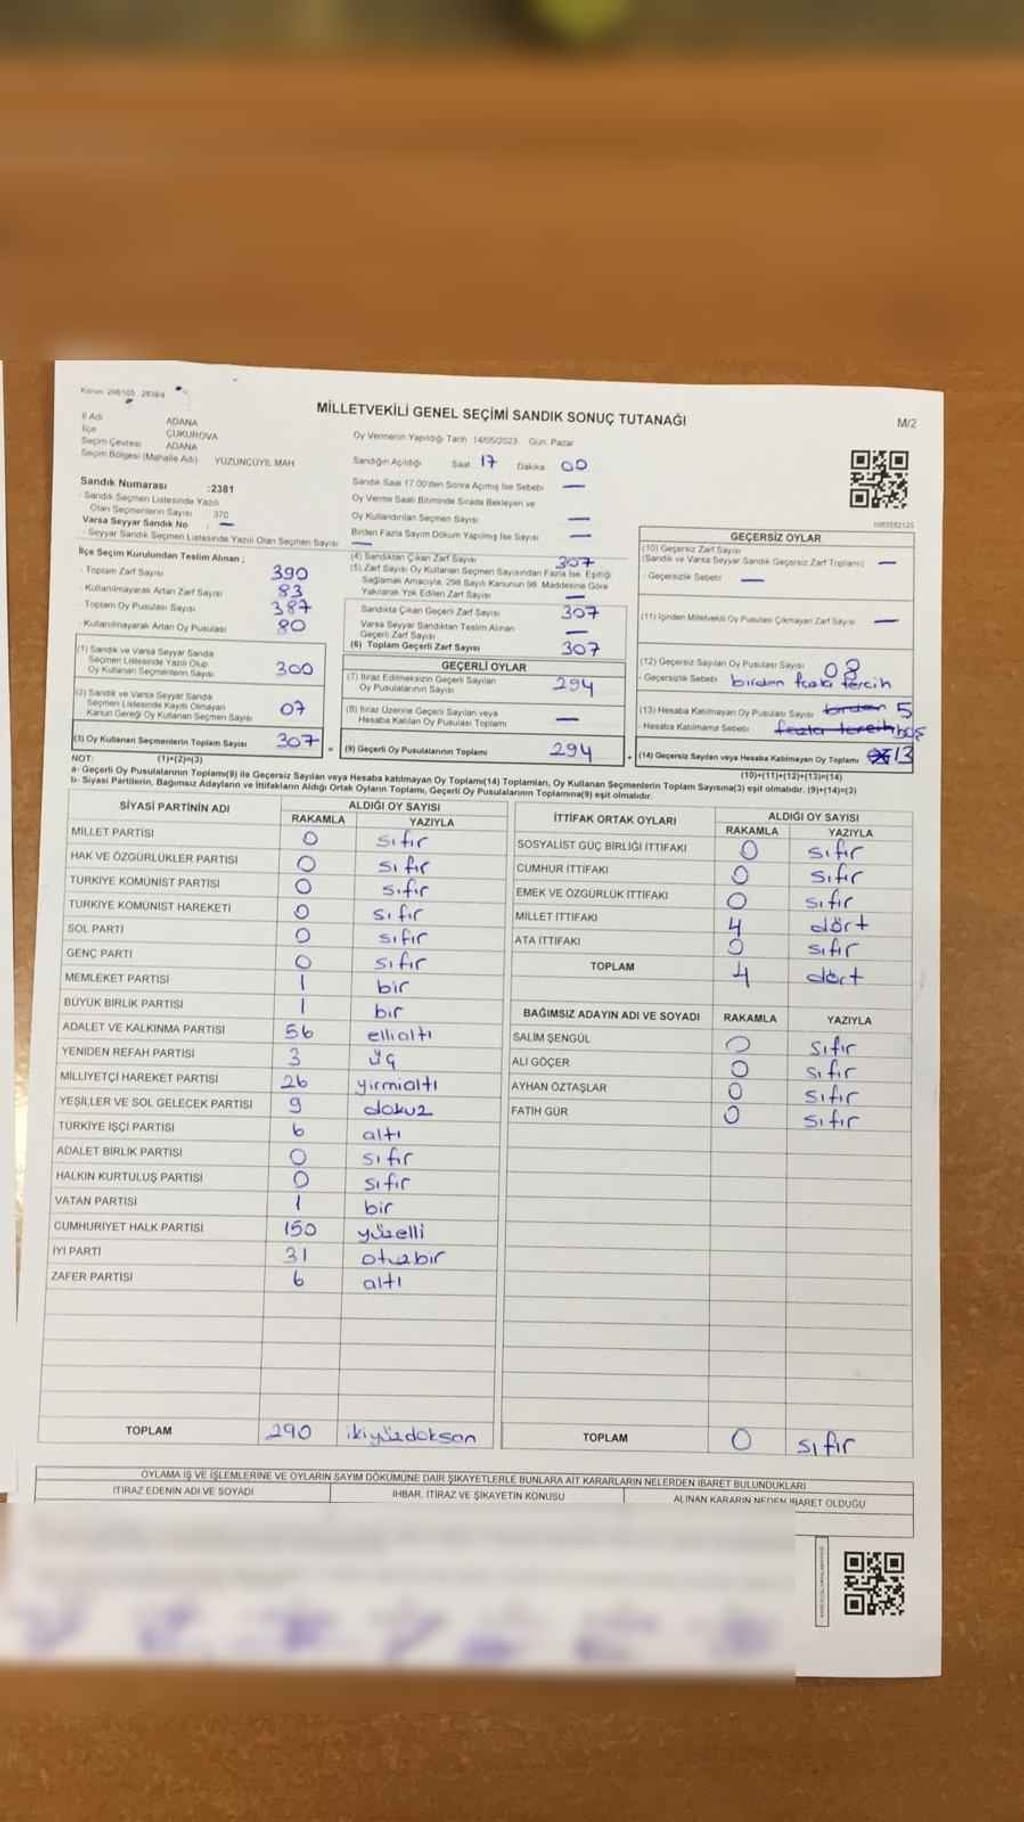 MİLLETVEKİLİ GENEL SEÇİMİ SANDIK SONUÇ TUTANAĞI
M/2
İl Adı ADANA
İlçe ÇUKUROVA
Seçim Çevresi ADANA
Seçim Bölgesi (Mahalle Adı) YÜZÜNCÜYIL MAH
Oy Vermenin Yapıldığı Tarih 14/05/2023 Gün Pazar
Sandığın Açıldığı Saat 17 Dakika 00
Sandık Saat 17.00'den Sonra Açılmış İse Sebebi —
Oy Verme Saati Bitiminde Sırada Bekleyen ve
Oy Kullandırılan Seçmen Sayısı —
Birden Fazla Sayım Döküm Yapılmış İse Sayısı —
Sandık Numarası :2381
Sandık Seçmen Listesinde Yazılı
Olan Seçmenlerin Sayısı 370
Varsa Seyyar Sandık No : —
Seyyar Sandık Seçmen Listesinde Yazılı Olan Seçmen Sayısı —
İlçe Seçim Kurulundan Teslim Alınan ;
Toplam Zarf Sayısı 390
Kullanılmayarak Artan Zarf Sayısı 83
Toplam Oy Pusulası Sayısı 387
Kullanılmayarak Artan Oy Pusulası 80
(1) Sandık ve Varsa Seyyar Sandık
Seçmen Listesinde Yazılı Olup
Oy Kullanan Seçmenlerin Sayısı 300
(2) Sandık ve Varsa Seyyar Sandık
Seçmen Listesinde Kaydı Olmayan
Kanun Gereği Oy Kullanan Seçmen Sayısı 07
(3) Oy Kullanan Seçmenlerin Toplam Sayısı 307
(1)+(2)=(3)
(4) Sandıktan Çıkan Zarf Sayısı 307
(5) Zarf Sayısı Oy Kullanan Seçmen Sayısından Fazla İse, Eşitliği
Sağlamak Amacıyla, 298 Sayılı Kanunun 98. Maddesine Göre
Yakılarak Yok Edilen Zarf Sayısı —
Sandıkta Çıkan Geçerli Zarf Sayısı 307
Varsa Seyyar Sandıktan Teslim Alınan
Geçerli Zarf Sayısı —
(6) Toplam Geçerli Zarf Sayısı 307
GEÇERLİ OYLAR
(7) İtiraz Edilmeksizin Geçerli Sayılan
Oy Pusulalarının Sayısı 294
(8) İtiraz Üzerine Geçerli Sayılan veya
Hesaba Katılan Oy Pusulası Toplamı —
(9) Geçerli Oy Pusulalarının Toplamı 294
GEÇERSİZ OYLAR
(10) Geçersiz Zarf Sayısı
(Sandık ve Varsa Seyyar Sandık Geçersiz Zarf Toplamı) —
Geçersizlik Sebebi —
(11) İçinden Milletvekili Oy Pusulası Çıkmayan Zarf Sayısı —
(12) Geçersiz Sayılan Oy Pusulası Sayısı 08
Geçersizlik Sebebi birden fazla tercih
(13) Hesaba Katılmayan Oy Pusulası Sayısı birden 5
Hesaba Katılmama Sebebi fazla tercih boş
(14) Geçersiz Sayılan veya Hesaba Katılmayan Oy Toplamı 13
(10)+(11)+(12)+(13)=(14)
NOT:
a- Geçerli Oy Pusulalarının Toplamı(9) ile Geçersiz Sayılan veya Hesaba katılmayan Oy Toplamı(14) Toplamları, Oy Kullanan Seçmenlerin Toplam Sayısına(3) eşit olmalıdır. (9)+(14)=(3)
b- Siyasi Partilerin, Bağımsız Adayların ve İttifakların Aldığı Ortak Oyların Toplamı, Geçerli Oy Pusulalarının Toplamına(9) eşit olmalıdır.
SİYASİ PARTİNİN ADI ALDIĞI OY SAYISI
RAKAMLA YAZIYLA
MİLLET PARTİSİ 0 sıfır
HAK VE ÖZGÜRLÜKLER PARTİSİ 0 sıfır
TÜRKİYE KOMÜNİST PARTİSİ 0 sıfır
TÜRKİYE KOMÜNİST HAREKETİ 0 sıfır
SOL PARTİ 0 sıfır
GENÇ PARTİ 0 sıfır
MEMLEKET PARTİSİ 1 bir
BÜYÜK BİRLİK PARTİSİ 1 bir
ADALET VE KALKINMA PARTİSİ 56 ellialtı
YENİDEN REFAH PARTİSİ 3 üç
MİLLİYETÇİ HAREKET PARTİSİ 26 yirmialtı
YEŞİLLER VE SOL GELECEK PARTİSİ 9 dokuz
TÜRKİYE İŞÇİ PARTİSİ 6 altı
ADALET BİRLİK PARTİSİ 0 sıfır
HALKIN KURTULUŞ PARTİSİ 0 sıfır
VATAN PARTİSİ 1 bir
CUMHURİYET HALK PARTİSİ 150 yüzelli
İYİ PARTİ 31 otuzbir
ZAFER PARTİSİ 6 altı
TOPLAM 290 ikiyüzdoksan
İTTİFAK ORTAK OYLARI ALDIĞI OY SAYISI
RAKAMLA YAZIYLA
SOSYALİST GÜÇ BİRLİĞİ İTTİFAKI 0 sıfır
CUMHUR İTTİFAKI 0 sıfır
EMEK VE ÖZGÜRLÜK İTTİFAKI 0 sıfır
MİLLET İTTİFAKI 4 dört
ATA İTTİFAKI 0 sıfır
TOPLAM 4 dört
BAĞIMSIZ ADAYIN ADI VE SOYADI RAKAMLA YAZIYLA
SALİM ŞENGÜL 0 sıfır
ALİ GÖÇER 0 sıfır
AYHAN ÖZTAŞLAR 0 sıfır
FATİH GÜR 0 sıfır
TOPLAM 0 sıfır
OYLAMA İŞ VE İŞLEMLERİNE VE OYLARIN SAYIM DÖKÜMÜNE DAİR ŞİKAYETLERLE BUNLARA AİT KARARLARIN NELERDEN İBARET BULUNDUKLARI
İTİRAZ EDENİN ADI VE SOYADI
İHBAR, İTİRAZ VE ŞİKAYETİN KONUSU
ALINAN KARARIN NEDEN İBARET OLDUĞU